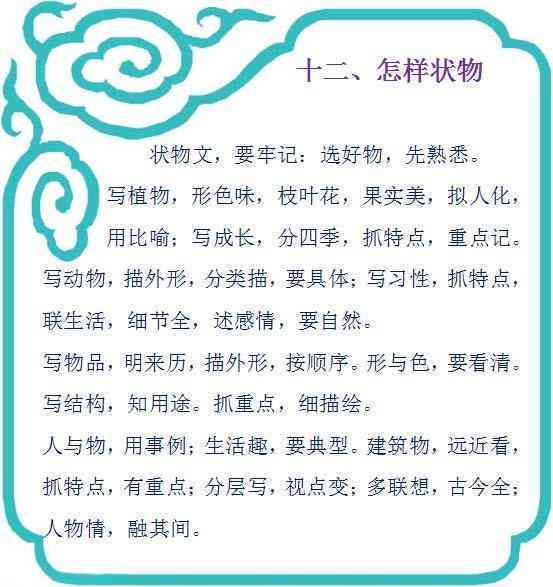 十二、怎样状物
状物文，要牢记：选好物，先熟悉。
写植物，形色味，枝叶花，果实美，拟人化，
用比喻；写成长，分四季，抓特点，重点记。
写动物，描外形，分类描，要具体；写习性，抓特点，
联生活，细节全，述感情，要自然。
写物品，明来历，描外形，按顺序。形与色，要看清。
写结构，知用途。抓重点，细描绘。
人与物，用事例；生活趣，要典型。建筑物，远近看，
抓特点，有重点；分层写，视点变；多联想，古今全；
人物情，融其间。